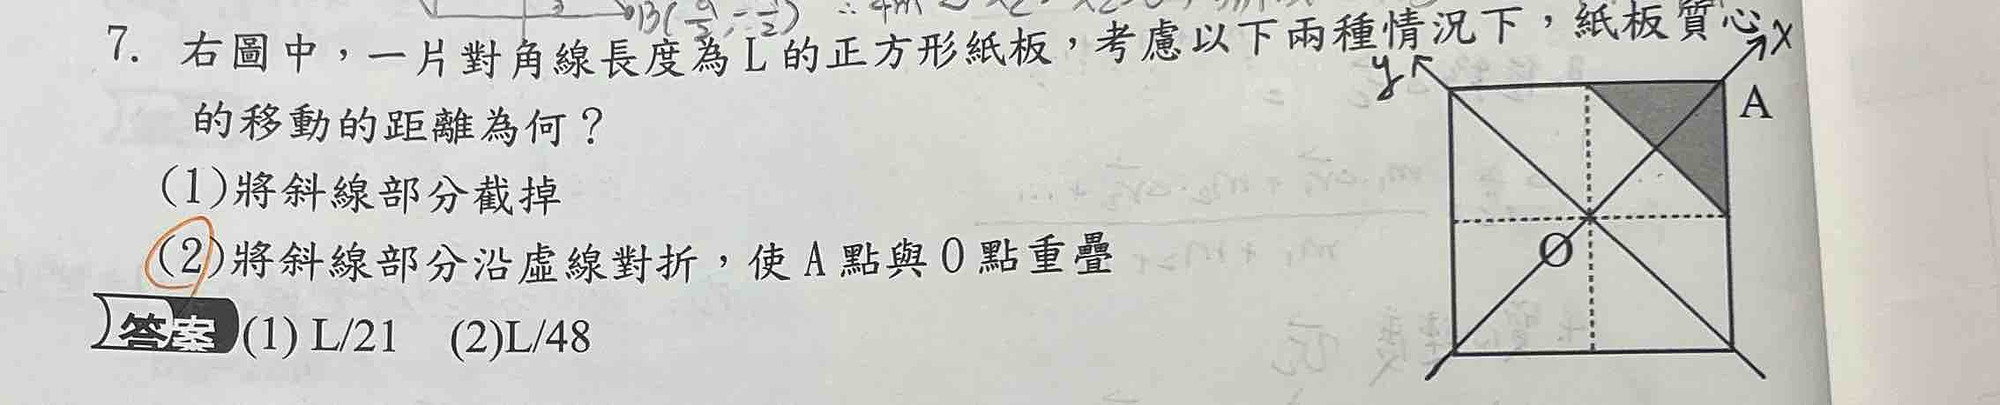 B(9/2, -1/2)
7. 右圖中，一片對角線長度為 L 的正方形紙板，考慮以下兩種情況下，紙板質心
的移動的距離為何？
(1)將斜線部分截掉
(2)將斜線部分沿虛線對折，使 A 點與 O 點重疊
答案 (1) L/21 (2)L/48
x
y
A
O